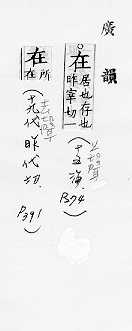 廣韻
在 居也存也昨宰切 (十五海) 上聲 P.274
在 所在 (十九代 昨代切) 去聲 P.391